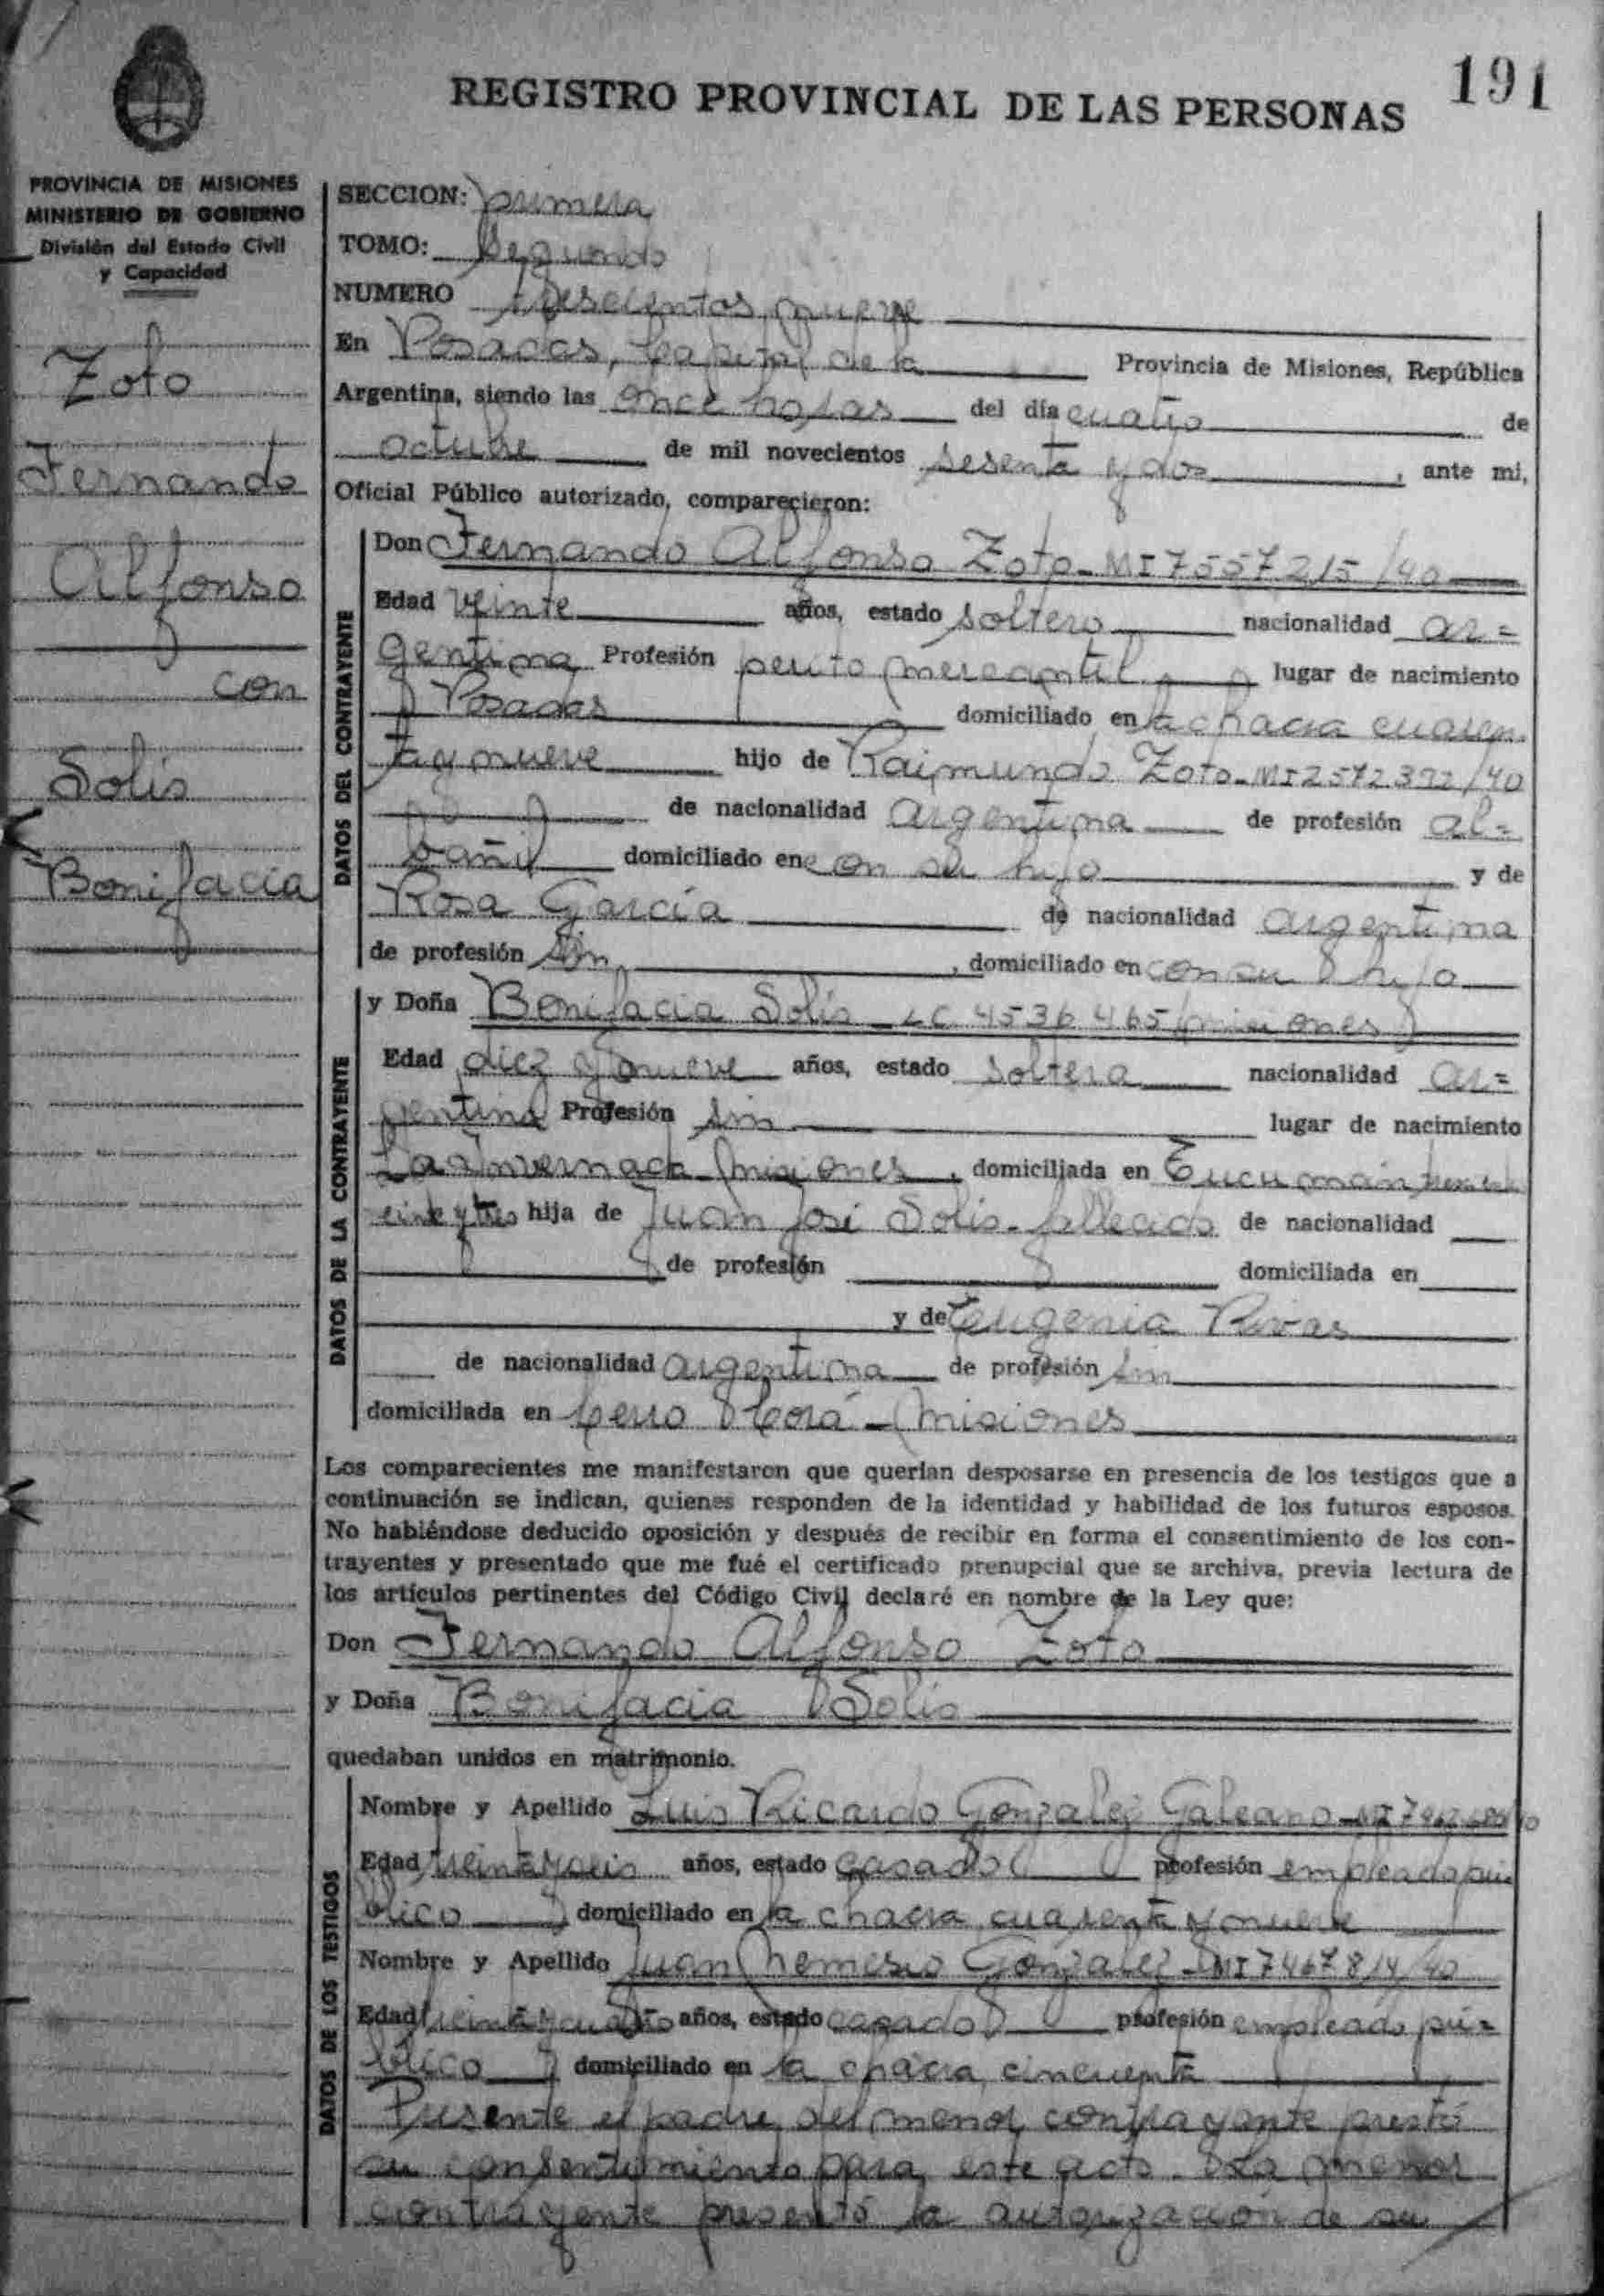 191
REGISTRO PROVINCIAL DE LAS PERSONAS
PROVINCIA DE MISIONES
MINISTERIO DE GOBIERNO
División del Estado Civil
y Capacidad
Zoto
Fernando
Alfonso
con
Solis
Bonifacia
SECCION: primera
TOMO: Segundo
NUMERO trescientos nueve
En Posadas, Capital de la Provincia de Misiones, República
Argentina, siendo las once horas del día cuatro de
octubre de mil novecientos sesenta y dos, ante mi,
Oficial Público autorizado, comparecieron:
DATOS DEL CONTRAYENTE
Don Fernando Alfonso Zoto - MI 7557215/40
Edad veinte años, estado soltero nacionalidad ar=
gentina Profesión perito mercantil lugar de nacimiento
Posadas domiciliado en la chacra cuaren
ta y nueve hijo de Raimundo Zoto - MI 2572392/40
de nacionalidad argentina de profesión al=
bañil domiciliado en con su hijo y de
Rosa García de nacionalidad argentina
de profesión sin, domiciliado en con su hijo
DATOS DE LA CONTRAYENTE
y Doña Bonifacia Solis - LC 4536465 misiones
Edad diez y nueve años, estado soltera nacionalidad ar=
gentina Profesión sin lugar de nacimiento
La Invernada misiones, domiciliada en Tucumán
veinte y tres hija de Juan José Solis - fallecido de nacionalidad
de profesión domiciliada en
y de Eugenia Rivas
de nacionalidad argentina de profesión sin
domiciliada en Cerro Corá - misiones
Los comparecientes me manifestaron que querían desposarse en presencia de los testigos que a
continuación se indican, quienes responden de la identidad y habilidad de los futuros esposos.
No habiéndose deducido oposición y después de recibir en forma el consentimiento de los con-
trayentes y presentado que me fué el certificado prenupcial que se archiva, previa lectura de
los artículos pertinentes del Código Civil declaré en nombre de la Ley que:
Don Fernando Alfonso Zoto
y Doña Bonifacia Solis
quedaban unidos en matrimonio.
DATOS DE LOS TESTIGOS
Nombre y Apellido Luis Ricardo Gonzalez Galeano - MI
Edad treinta y seis años, estado casado profesión empleado pú
blico domiciliado en la chacra cuarenta y nueve
Nombre y Apellido Juan Nemesio Gonzalez - MI 7467814/40
Edad treinta y cuatro años, estado casado profesión empleado pú=
blico domiciliado en la chacra cincuenta
Presente el padre del menor contrayente prestó
su consentimiento para este acto. La menor
contrayente presentó la autorización de su